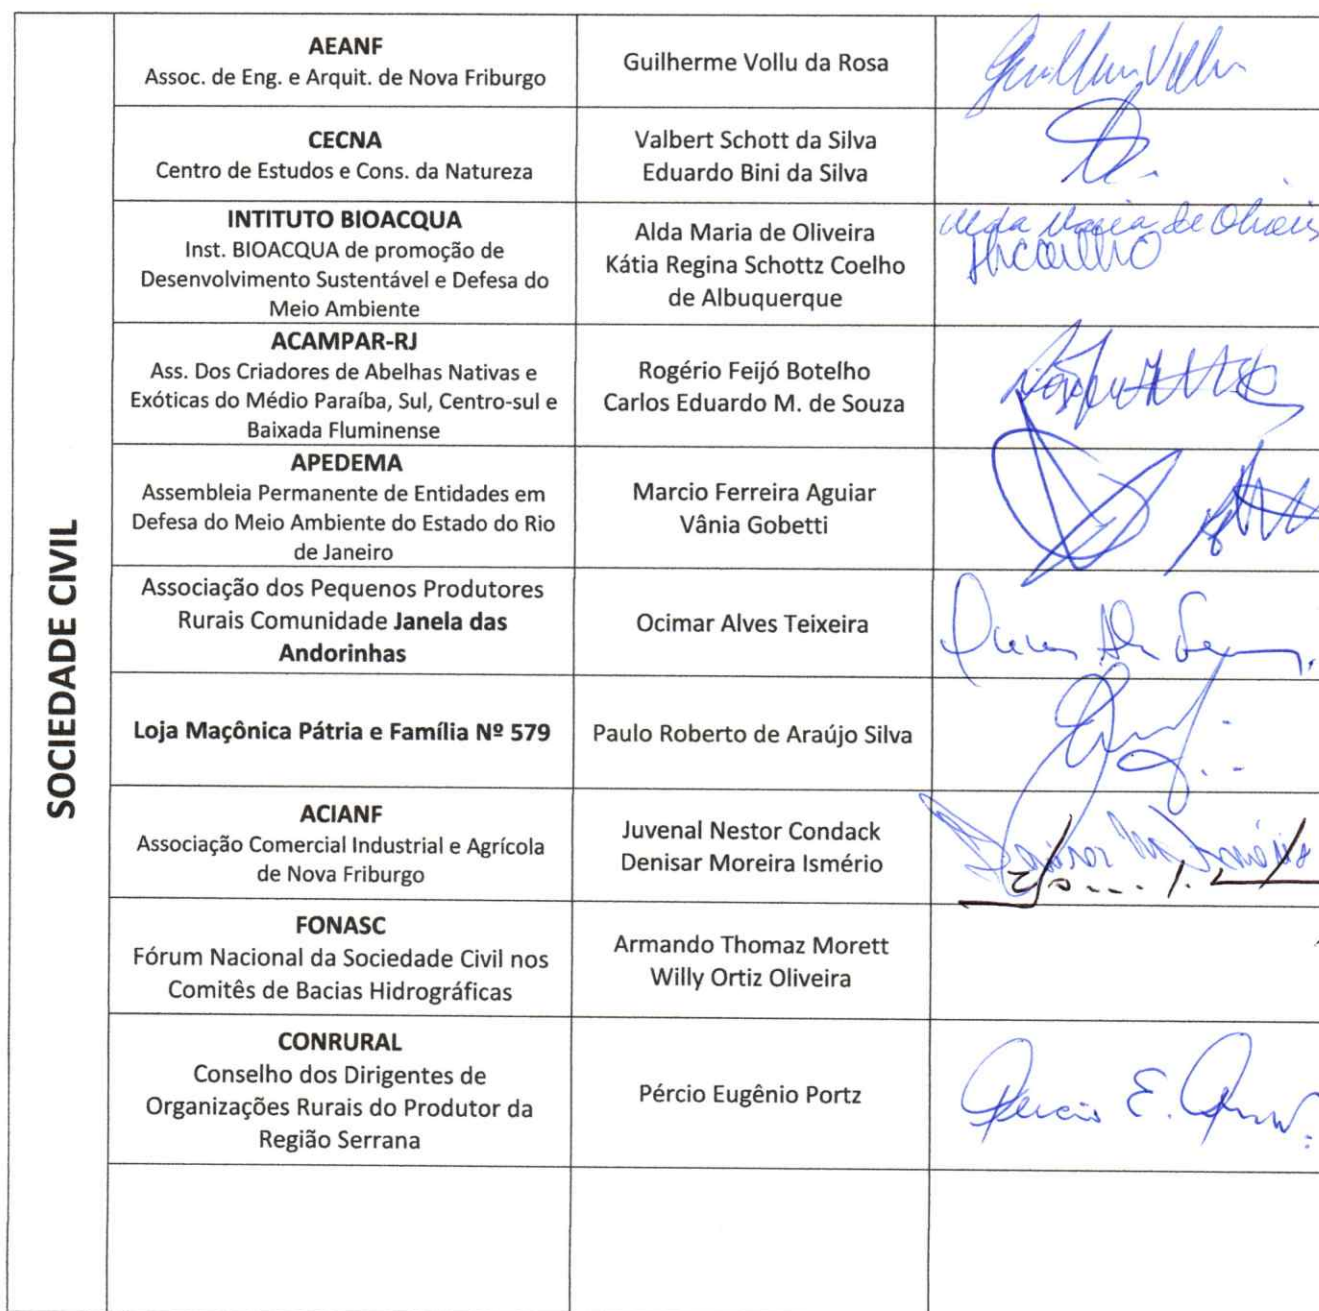 SOCIEDADE CIVIL
AEANF
Assoc. de Eng. e Arquit. de Nova Friburgo
Guilherme Vollu da Rosa
Guilherme Vollu
CECNA
Centro de Estudos e Cons. da Natureza
Valbert Schott da Silva
Eduardo Bini da Silva
INTITUTO BIOACQUA
Inst. BIOACQUA de promoção de
Desenvolvimento Sustentável e Defesa do
Meio Ambiente
Alda Maria de Oliveira
Kátia Regina Schottz Coelho
de Albuquerque
Alda Maria de Oliveira
ACAMPAR-RJ
Ass. Dos Criadores de Abelhas Nativas e
Exóticas do Médio Paraíba, Sul, Centro-sul e
Baixada Fluminense
Rogério Feijó Botelho
Carlos Eduardo M. de Souza
APEDEMA
Assembleia Permanente de Entidades em
Defesa do Meio Ambiente do Estado do Rio
de Janeiro
Marcio Ferreira Aguiar
Vânia Gobetti
Associação dos Pequenos Produtores
Rurais Comunidade Janela das
Andorinhas
Ocimar Alves Teixeira
Loja Maçônica Pátria e Família Nº 579
Paulo Roberto de Araújo Silva
ACIANF
Associação Comercial Industrial e Agrícola
de Nova Friburgo
Juvenal Nestor Condack
Denisar Moreira Ismério
FONASC
Fórum Nacional da Sociedade Civil nos
Comitês de Bacias Hidrográficas
Armando Thomaz Morett
Willy Ortiz Oliveira
CONRURAL
Conselho dos Dirigentes de
Organizações Rurais do Produtor da
Região Serrana
Pércio Eugênio Portz
Pércio E.